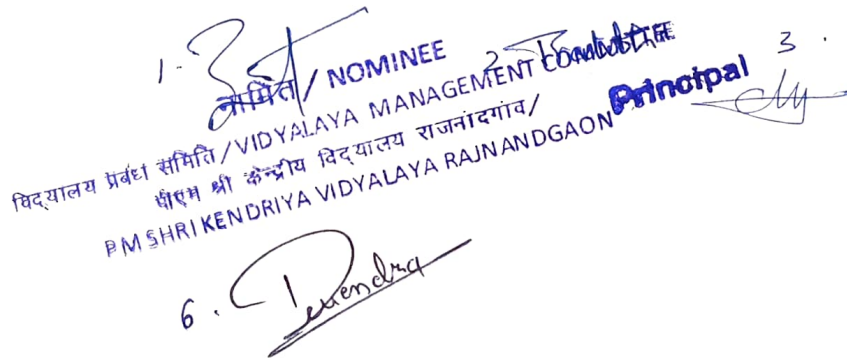 1.
2
3.
नामित / NOMINEE
विद्यालय प्रबंध समिति / VIDYALAYA MANAGEMENT COMMITTEE
पीएम श्री केन्द्रीय विद्यालय राजनांदगांव/
PM SHRI KENDRIYA VIDYALAYA RAJNANDGAON
Principal
6. Devendra